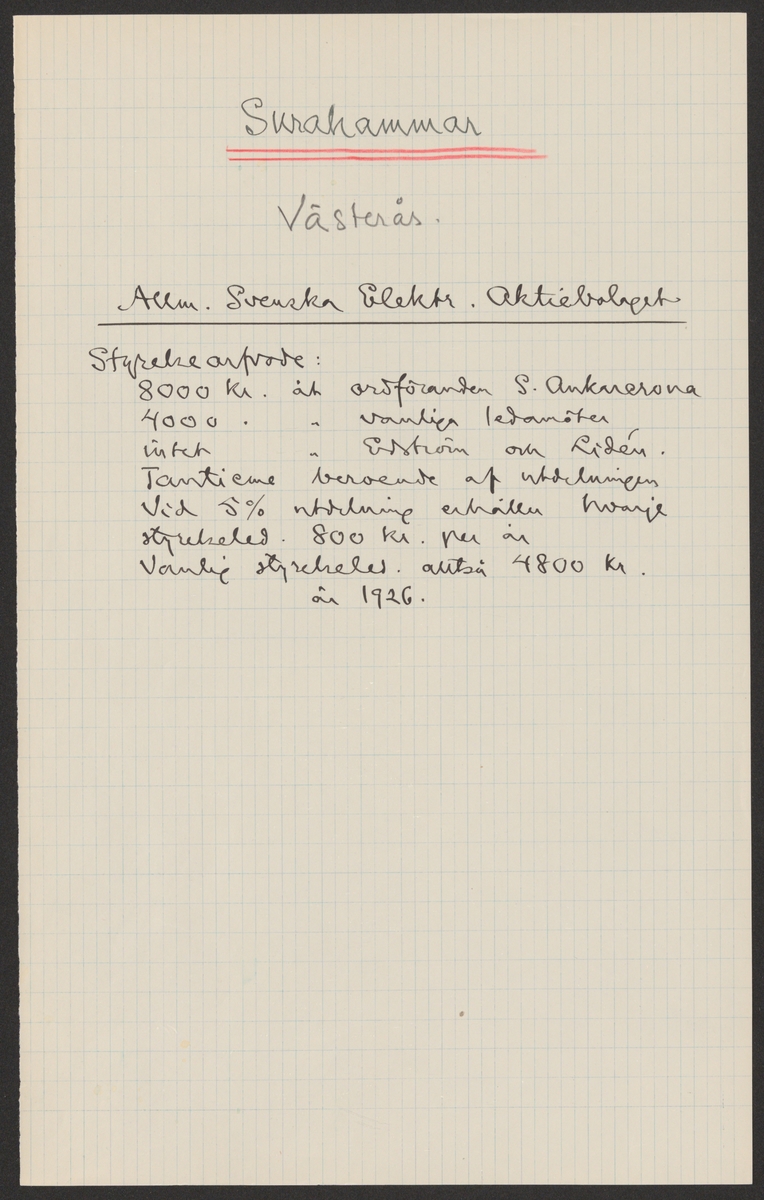 Surahammar
Västerås.
Allm. Svenska Elektr. Aktiebolaget
Styrelsearfvode:
8000 Kr. åt ordföranden S. Ankarcrona
4000 . " vanliga ledamöter
intet " Edström och Lidén.
Tantieme beroende af utdelningen
Vid 5% utdelning erhåller hvarje
styrelseled. 800 Kr. per år
Vanlig styrelseled. alltså 4800 Kr.
år 1926.